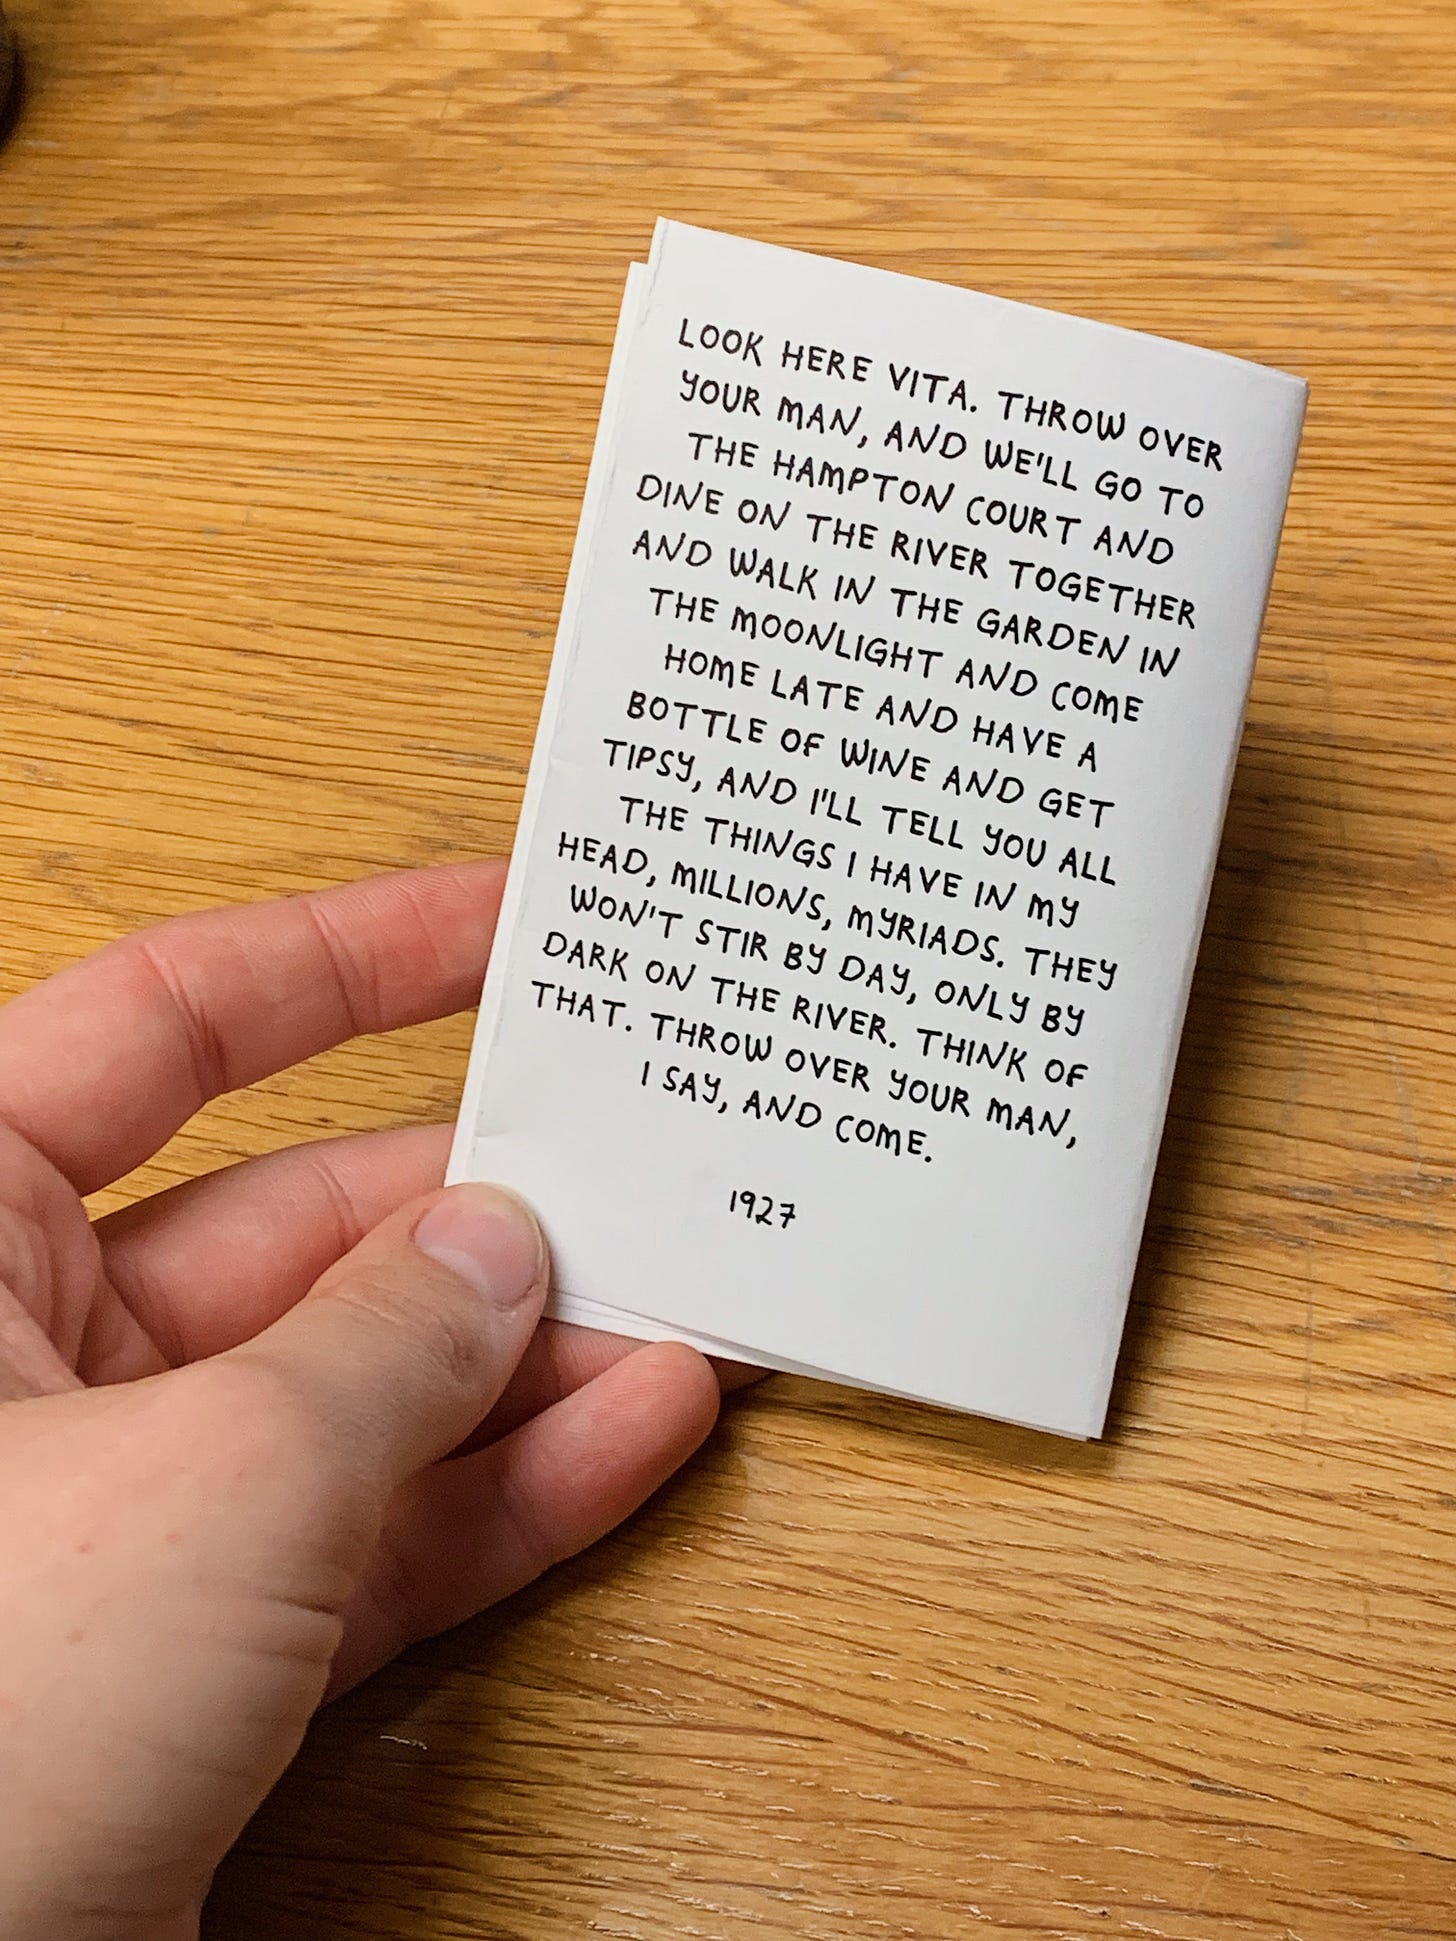 LOOK HERE VITA. THROW OVER
YOUR MAN, AND WE'LL GO TO
THE HAMPTON COURT AND
DINE ON THE RIVER TOGETHER
AND WALK IN THE GARDEN IN
THE MOONLIGHT AND COME
HOME LATE AND HAVE A
BOTTLE OF WINE AND GET
TIPSY, AND I'LL TELL YOU ALL
THE THINGS I HAVE IN MY
HEAD, MILLIONS, MYRIADS. THEY
WON'T STIR BY DAY, ONLY BY
DARK ON THE RIVER. THINK OF
THAT. THROW OVER YOUR MAN,
I SAY, AND COME.
1927